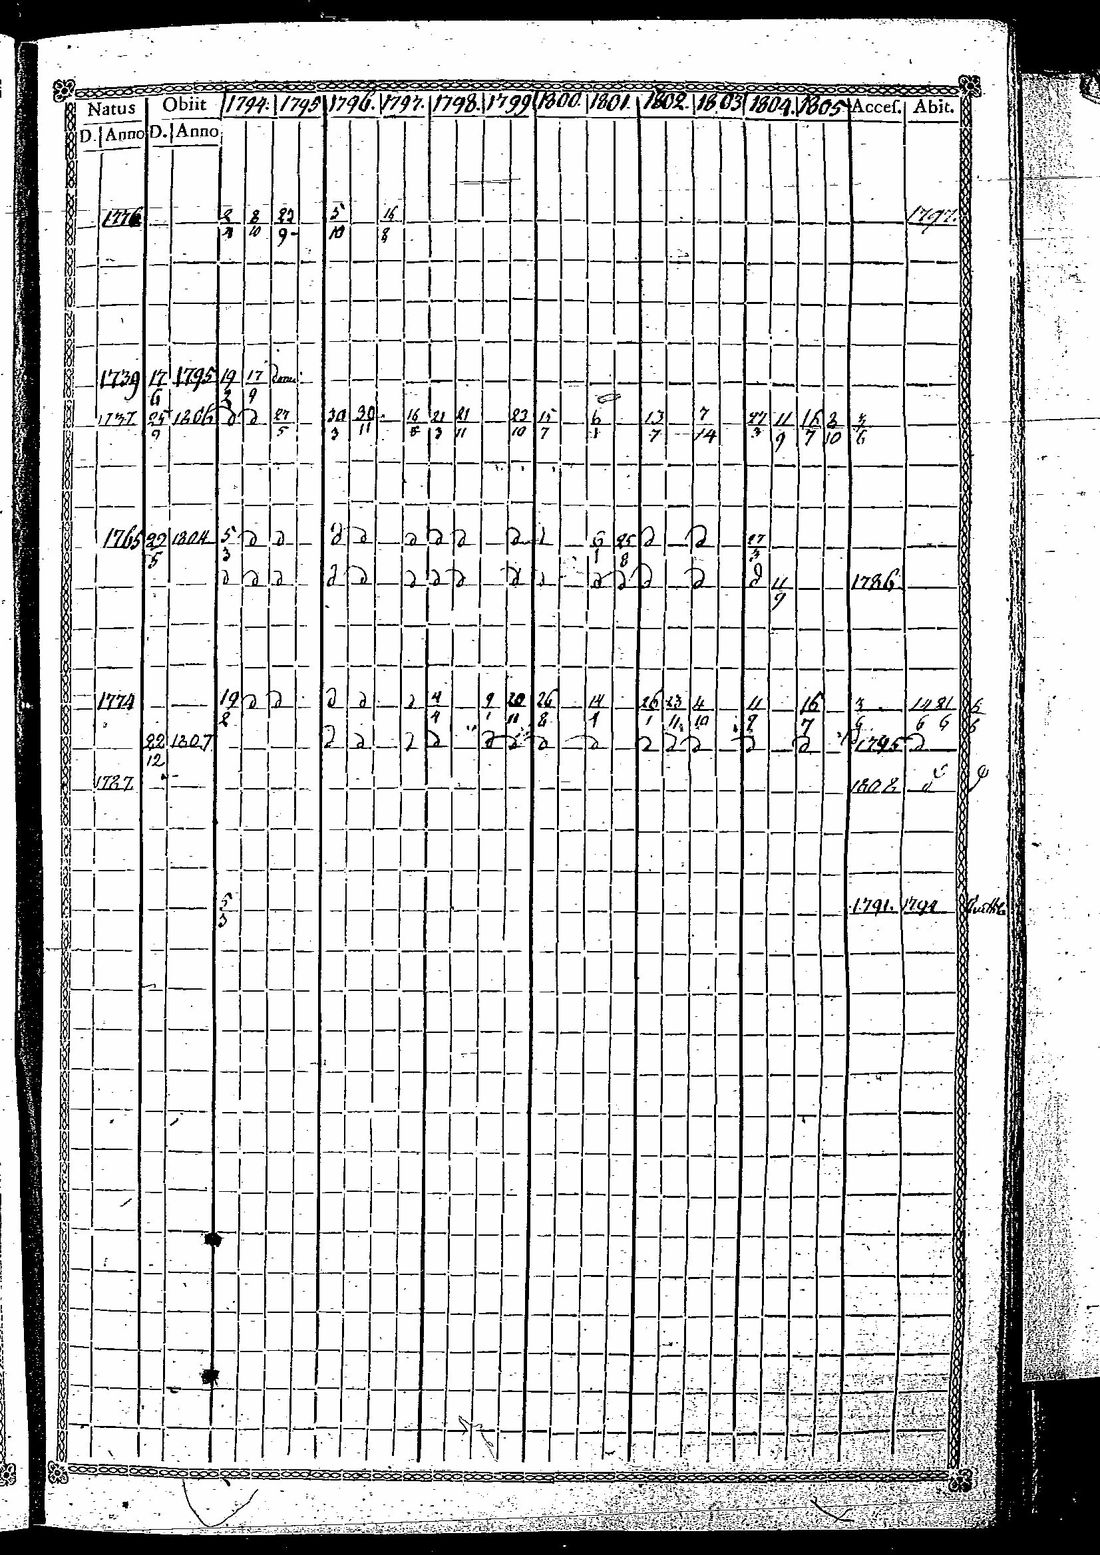 Natus Obiit 1794. 1795 1796. 1797. 1798. 1799 1800. 1801. 1802. 1803. 1804. 1805 Accef. Abit.
D. Anno D. Anno
1776 8/10 5/10 16/8 1797.
1739 17/6 1795 19/2 17/9
1737 25/9 1806 ∂ ∂ 27/5 30/3 30/11 16/5 21/3 21/11 23/10 15/7 6/1 13/7 7/14 27/3 11/9 15/7 2/10 3/6
1765 22/5 1804 5/3 ∂ ∂ ∂ ∂ ∂ ∂ ∂ ∂ 6/1 25/8 ∂ ∂ 27/3
∂ ∂ ∂ ∂ ∂ ∂ ∂ ∂ ∂ ∂ ∂ ∂ ∂ ∂ ∂ 11/9 1786.
1774 19/2 ∂ ∂ ∂ ∂ ∂ 4/4 9/1 20/11 26/8 14/1 26/1 23/11 4/10 16/7 3/6 14/6 21/6 5/6
22/12 1807 ∂ ∂ ∂ ∂ ∂ ∂ ∂ ∂ ∂ ∂ ∂ ∂ ∂ 1795 ∂
1787. 1802
5/3 1791. 1794